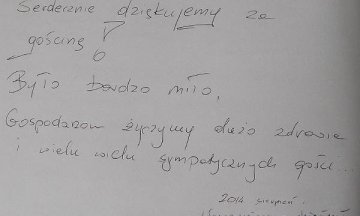 Serdecznie dziękujemy za
gościnę
Było bardzo miło.
Gospodarzom życzymy dużo zdrowia
i wielu wielu sympatycznych gości...
2014 sierpień